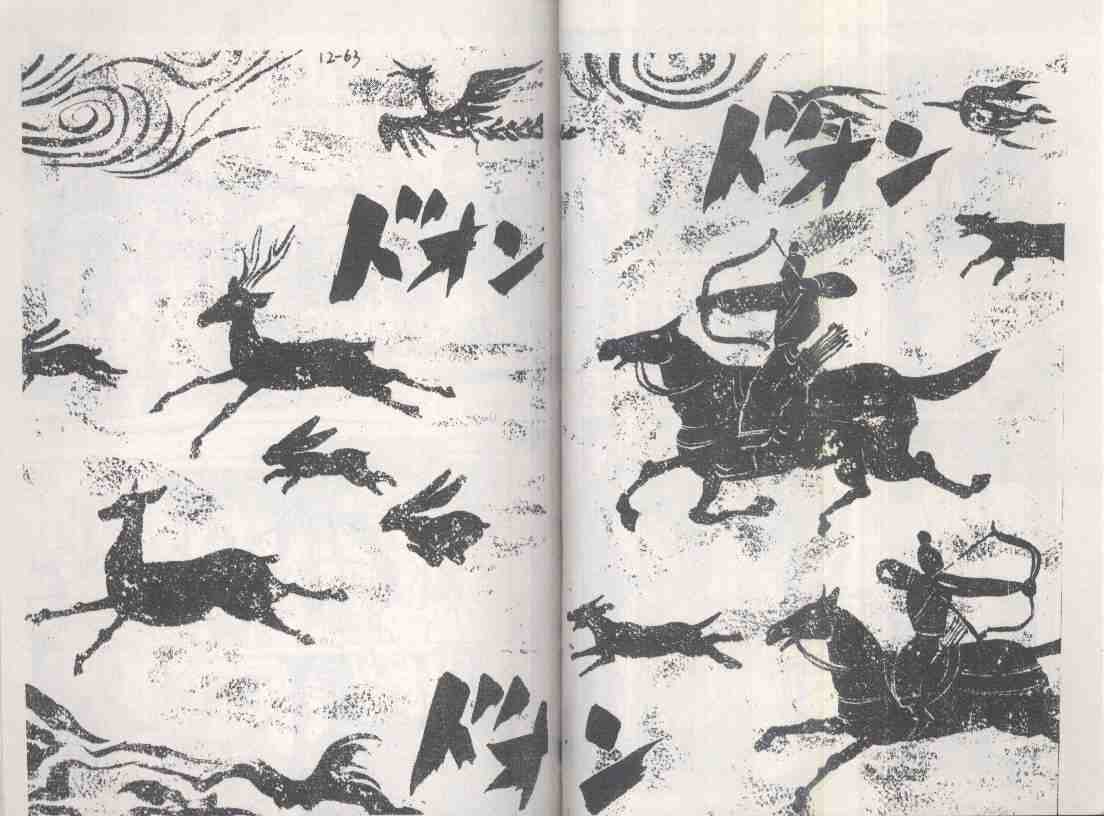 12-63
ドオン
ドオン
ドオン